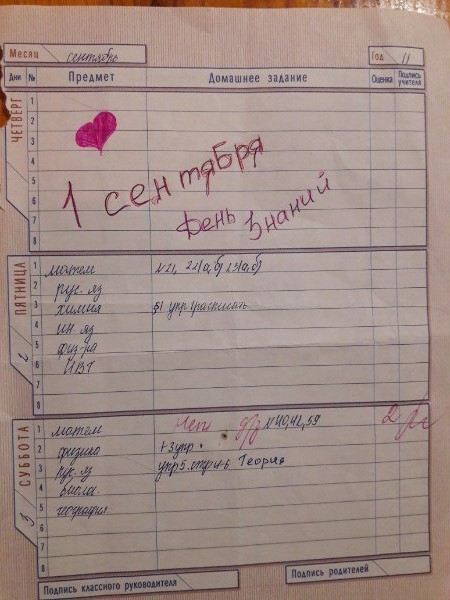 Месяц сентябрь Год 11
Дни № Предмет Домашнее задание Оценка Подпись учителя
ЧЕТВЕРГ
1
2
3
4
5
6
7
8
1 сентября
День Знаний
ПЯТНИЦА 2
1 матем №21, 22(а,б) 23(а,б)
2 рус. яз
3 химия §1 упр 1 расписать
4 ин яз
5 физ-ра
6 ИВТ
7
8
СУББОТА 3
1 матем Нет д/з №40,42,59 2
2 физика 1-3 упр.
3 рус. яз упр 5. стр 4-6 Теория
4 биолог.
5 география
6
7
8
Подпись классного руководителя
Подпись родителей